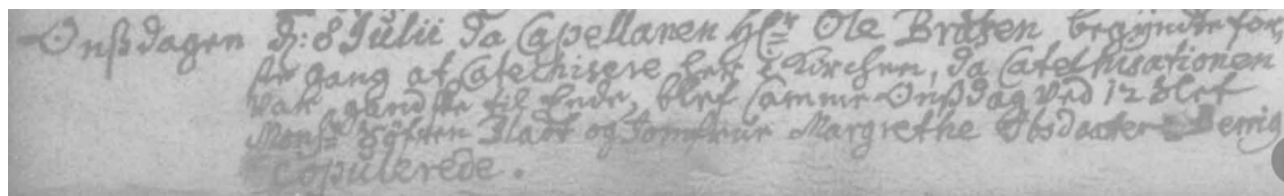 Onßdagen d: 8 Julii da Capellanen Hr Ole Bråten begyndte før-
ste gang at Catechisere her i Kirchen, da Catechisationen
var gandske til Ende, blef samme Onßdag ved 12 Slet
Monsr Plade og Jomfrue Margrethe
Copulerede.